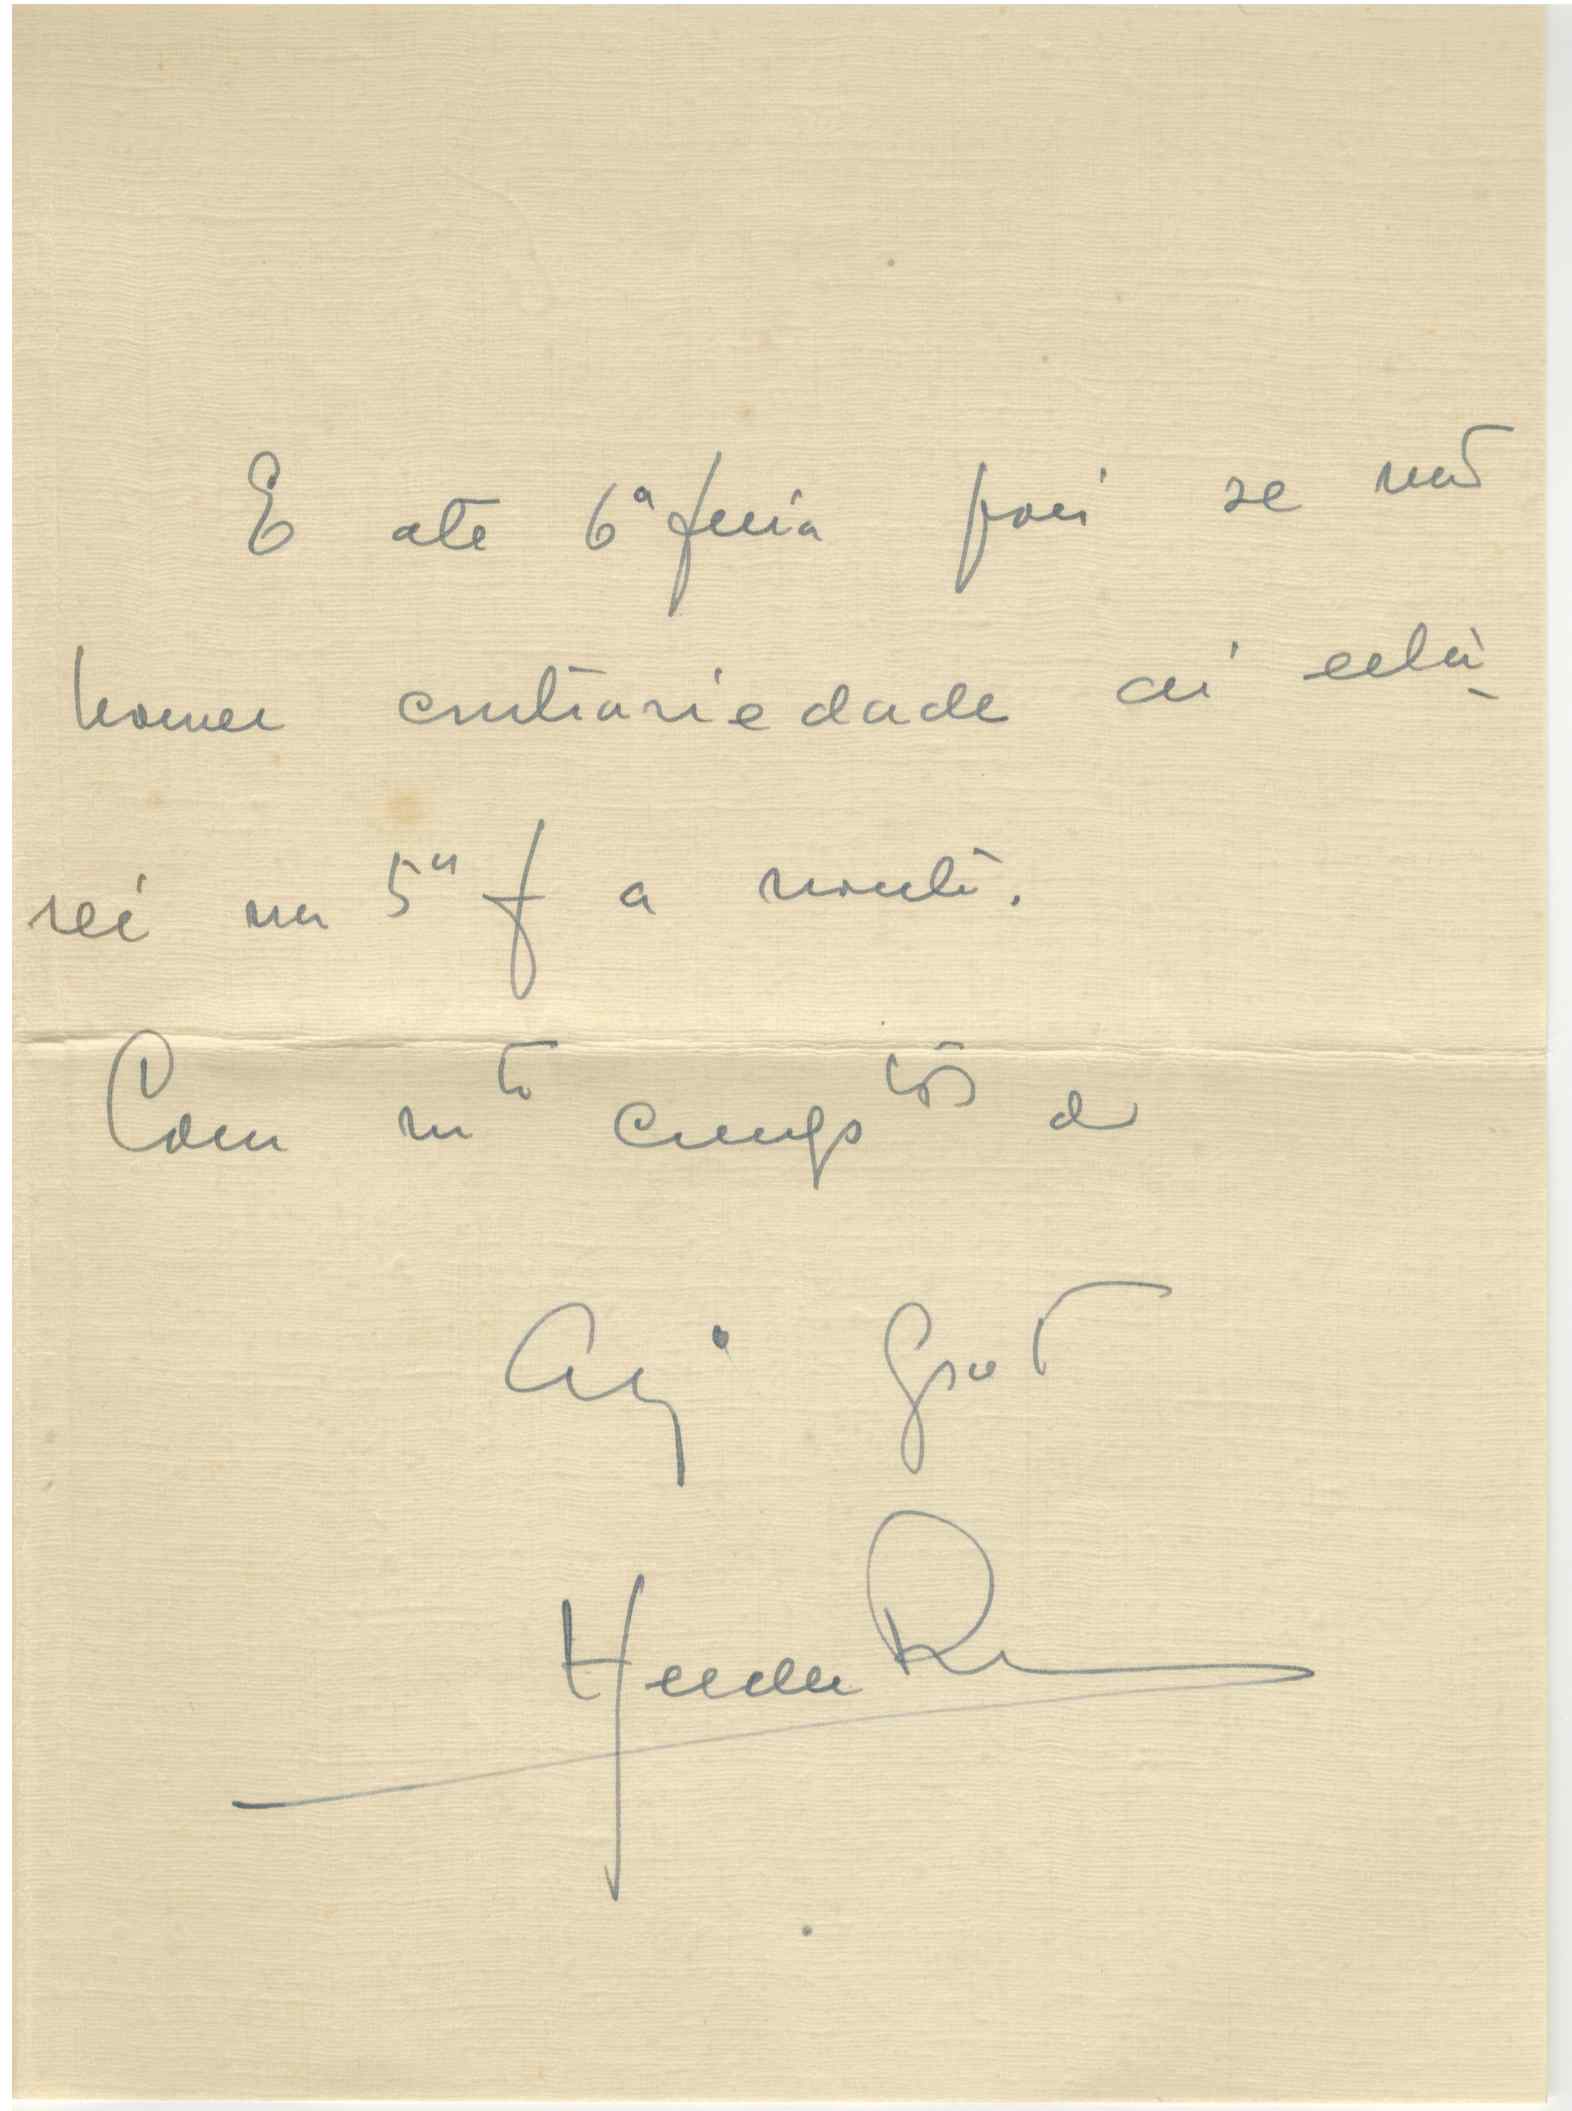 E ate 6ª feira pois se não
houver contrariedade aí esta-
rei na 5ª f a noute.
Com mto cumptos do
Amº Grato